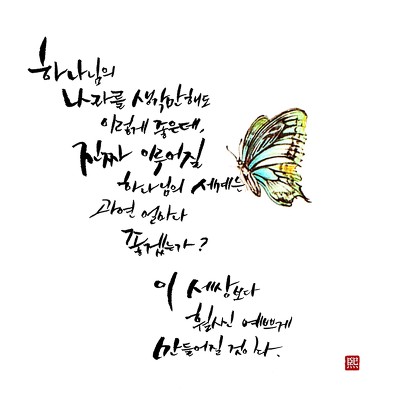 하나님의
나라를 생각만해도
이렇게 좋은데,
진짜 이루어질
하나님의 세계는
과연 얼마나
좋겠는가?
이 세상보다
훨씬 예쁘게
만들어질 것이다.
熙